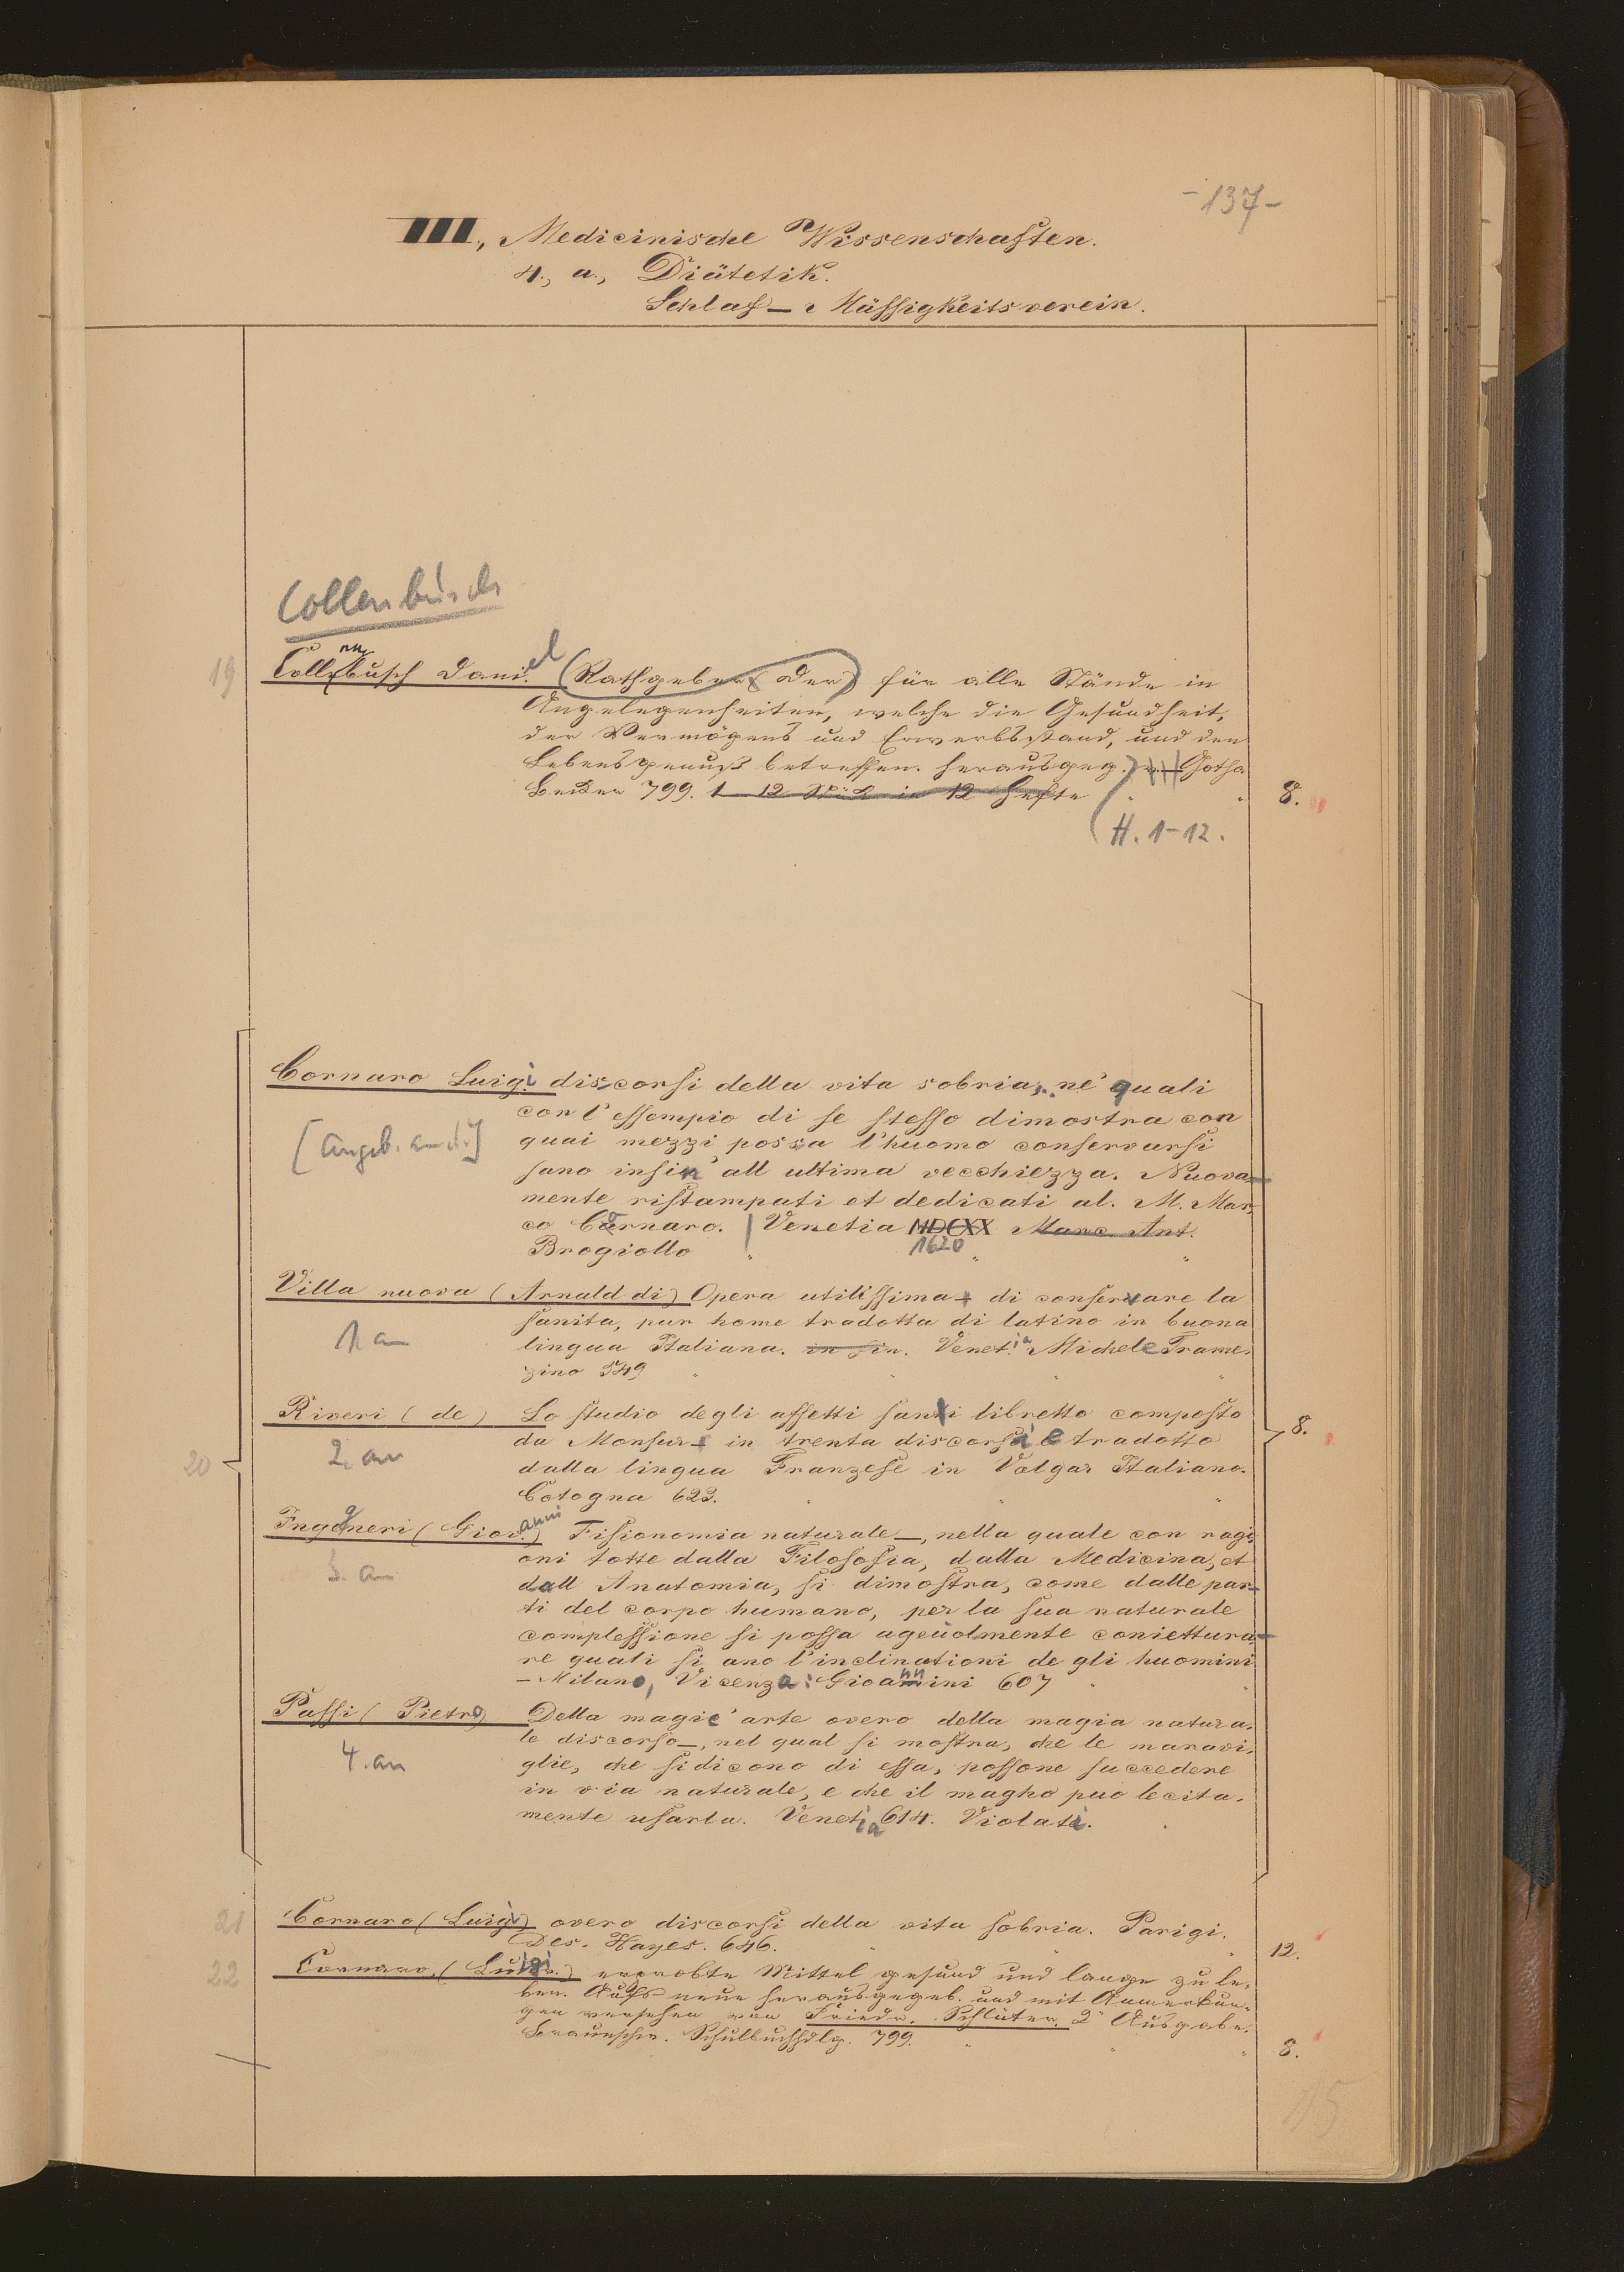 - 137 -
III., Medicinische Wissenschaften.
4., a., Diätetik.
Schlaf - Mässigkeitsverein.
Collenbusch
19 Collenbusch Daniel (Rathgeber, der) für alle Stände in
Angelegenheiten, welche die Gesundheit,
der Vermögens und Erwerbsstand, und den
Lebensgenuß betreffen. herausgeg. Gotha
Becker 799. 1 - 12 Stük in 12 Hefte " " 8.
H. 1-12.
Cornaro Luigi discorsi della vita sobria, ne' quali
con l'essempio di se stesso dimostra con
[angeb. an d.:]
quai mezzi possa l'huomo conservarsi
sano insin' all ultima vecchiezza. Nuova-
mente ristampati et dedicati al. M. Mar-
co Cornaro. | Venetia MDCXX Marc. Ant.
1620
Brogiollo " " "
Villa nuova (Arnald di) Opera utilissima di conservare la
sanita, pur home tradotta di latino in buona
1, an
lingua Italiana. in fin. Venetia Michele Trame-
zino 549 " " "
Riveri (de) Lo studio degli affetti santi libretto composto 8.
da Monsur in trenta discorsi e tradotto
2, an
20 dalla lingua Franzese in Volgar Italiano.
Cologna 623. " " "
Ingegneri (Giovanni) Fisionomia naturale, nella quale con ragi-
oni totte dalla Filosofia, dalla Medicina, et
3. an
dall Anatomia, si dimostra, come dalle par-
ti del corpo humano, per la sua naturale
complessione si possa ageuolmente coniettura-
re quali si ano l'inclinationi de gli huomini
- Milano, Vicenza: Gioannini 607 " "
Passi (Pietro) Della magic' arte overo della magia natura-
le discorso, nel qual si mostra, che le maravi-
4. an
glie, che si dicono di essa, possone succedere
in via naturale, e che il magho puo lecita-
mente usarla. Venetia 614. Violati.
21 Cornaro (Luigi) overo discorsi della vita sobria. Parigi.
Des. Hayes. 646. " " " 12.
22 Cornaro, (Luigi) erprobte Mittel gesund und lange zu le-
ben. Aufs neue herausgegeb. und mit Anmerkun-
gen versehen von Friedr. Schlüter. 2" Ausgabe.
Braunschw. Schulbuchhdlg. 799. " " " 8.
15